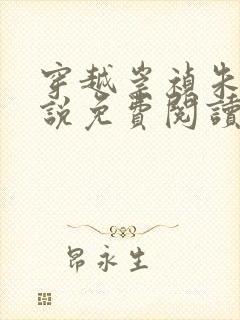 穿越崇禎朱
說免費閱讀
昂永生